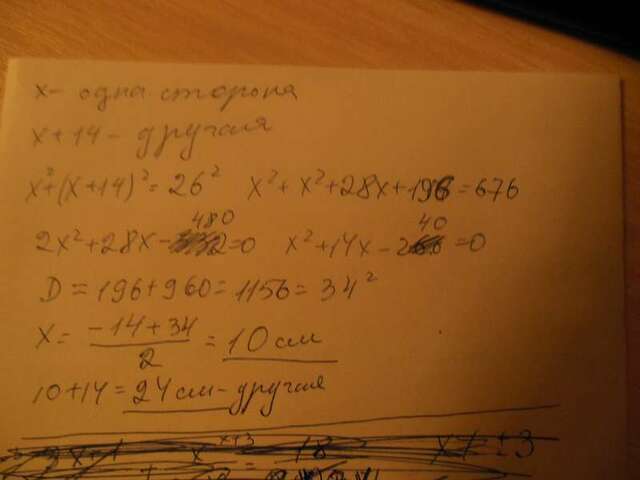 x - одна сторона
x+14 - другая
x²+(x+14)²=26² x²+x²+28x+196=676
2x²+28x-480=0 x²+14x-240=0
D=196+960=1156=34²
x=(-14+34)/2=10см
10+14=24см-другая